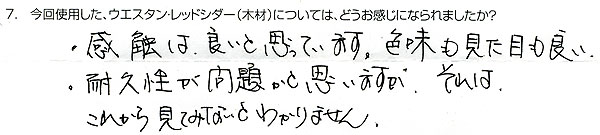 7. 今回使用した、ウエスタン・レッドシダー（木材）については、どうお感じになられましたか？
・感触は良いと思っています。色味も見た目も良い。
・耐久性が問題かと思いますが、それは、
これから見てみないとわかりません。